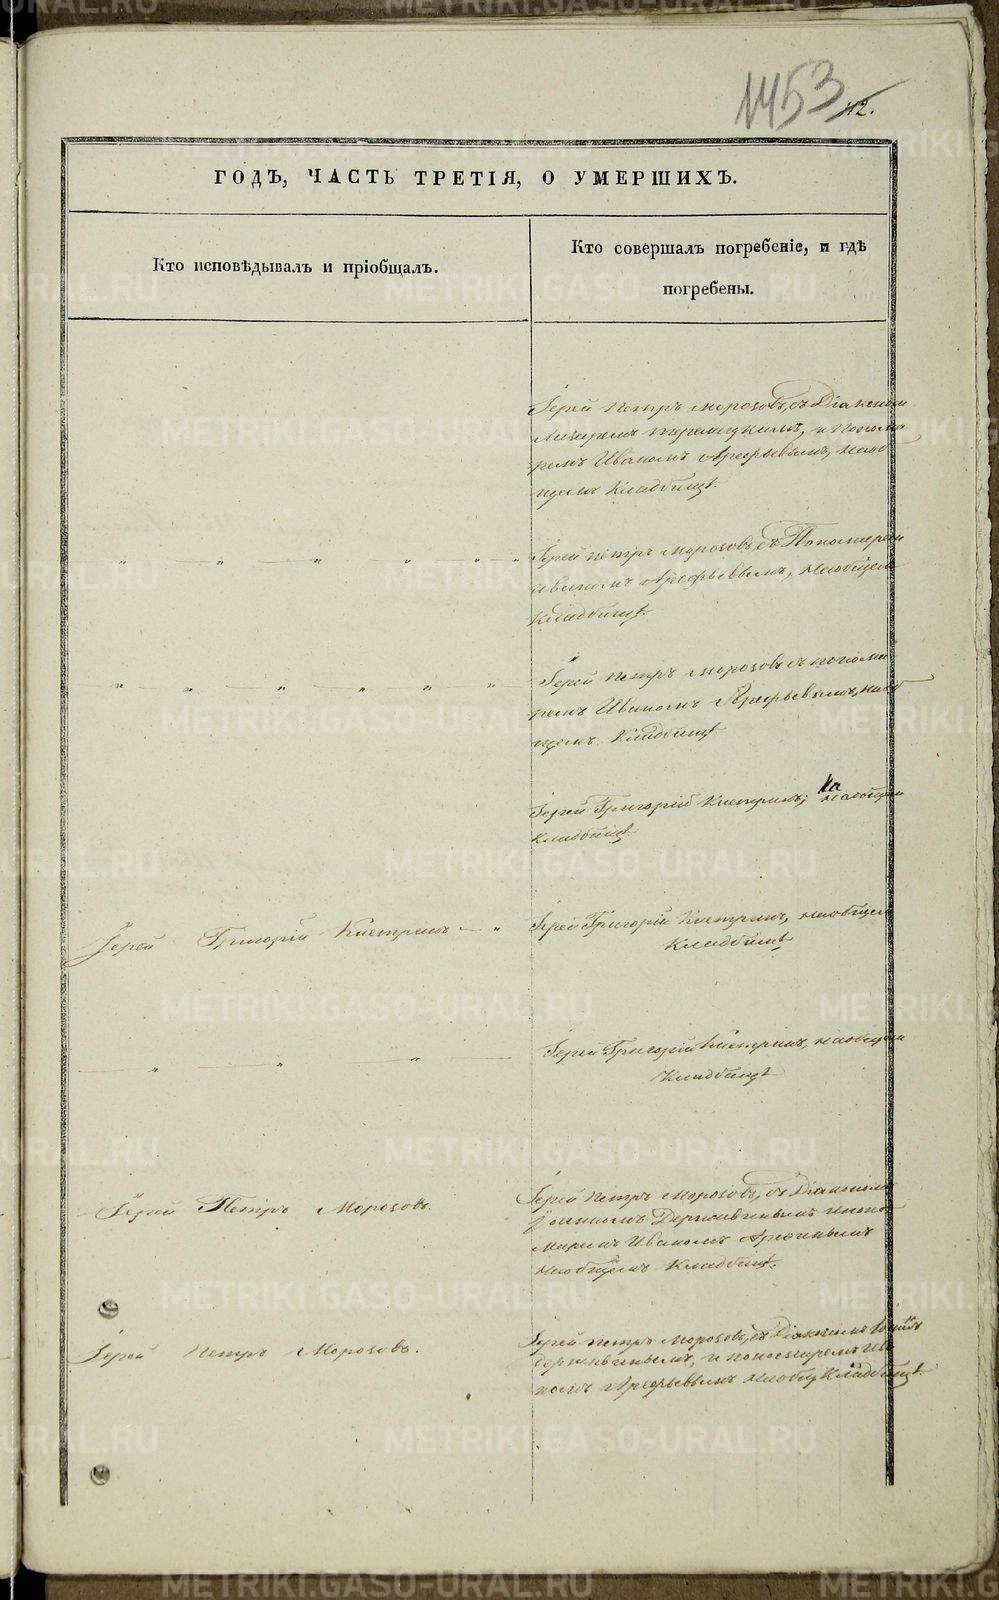 1453
42.
ГОДЪ, ЧАСТЬ ТРЕТІЯ, О УМЕРШИХЪ.
Кто исповѣдывалъ и пріобщалъ.
Кто совершалъ погребеніе, и гдѣ
погребены.
Іерей Петръ Морозовъ, съ Діакономъ
и Понома
ремъ Иваномъ Арефьевымъ, на об
щемъ Кладбищѣ.
Іерей Петръ Морозовъ, съ Пономаремъ
Иваномъ Арефьевымъ, на общемъ
Кладбищѣ.
Іерей Петръ Морозовъ съ понома
ремъ Иваномъ Арефьевымъ, на об
щемъ Кладбищѣ
Іерей Григорій Кипринъ, на общемъ
Кладбищѣ.
Іерей Григорій Кипринъ
Іерей Григорій Кипринъ, на общемъ
Кладбищѣ
Іерей Григорій Кипринъ, на общемъ
Кладбищѣ
Іерей Петръ Морозовъ.
Іерей Петръ Морозовъ, съ Діакономъ
Державинымъ и поно
маремъ Иваномъ
на общемъ Кладбищѣ.
Іерей Петръ Морозовъ.
Іерей Петръ Морозовъ, съ Діакономъ
Державинымъ, и пономаремъ Ива
номъ Арефьевымъ на общ Кладбищѣ.
METRIKI.GASO-URAL.RU